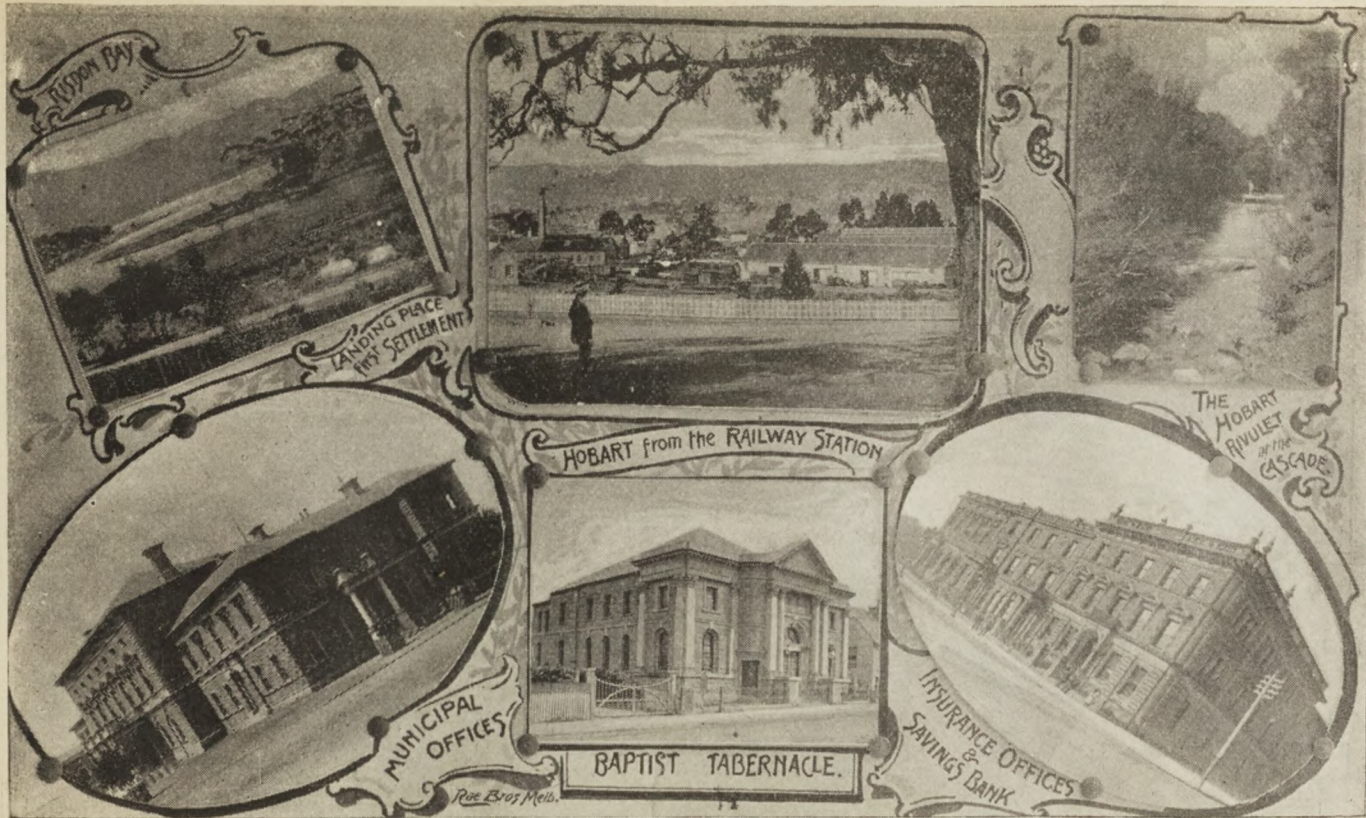 RISDON BAY
LANDING PLACE
FIRST SETTLEMENT
HOBART from the RAILWAY STATION
THE
HOBART
RIVULET
at the
CASCADE.
MUNICIPAL
OFFICES
BAPTIST TABERNACLE.
INSURANCE OFFICES
&
SAVINGS BANK
Rae Bros Melb.